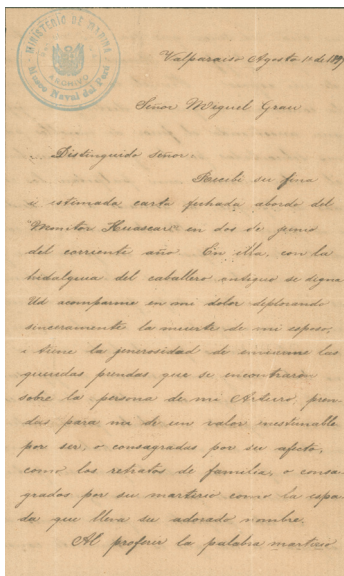 MINISTERIO DE MARINA
ARCHIVO
Museo Naval del Perú
Valparaiso Agosto 1º de 1879
Señor Miguel Grau
Distinguido señor:
Recibí su fina
i estimada carta fechada abordo del
"Monitor Huascar" en dos de junio
del corriente año En illa, con la
hidalguia del caballero antiguo se digna
Ud acompañarme en mi dolor deplorando
sinceramente la muerte de mi esposo,
i tiene la jenerosidad de enviarme las
queridas prendas que se encontraron
sobre la persona de mi Arturo, pren-
das para mi de un valor inestimable
por ser, o consagradas por su afecto,
como los retratos de familia, o consa-
grados por su martirio como la espa-
da que lleva su adorado nombre.
Al proferir la palabra martirio